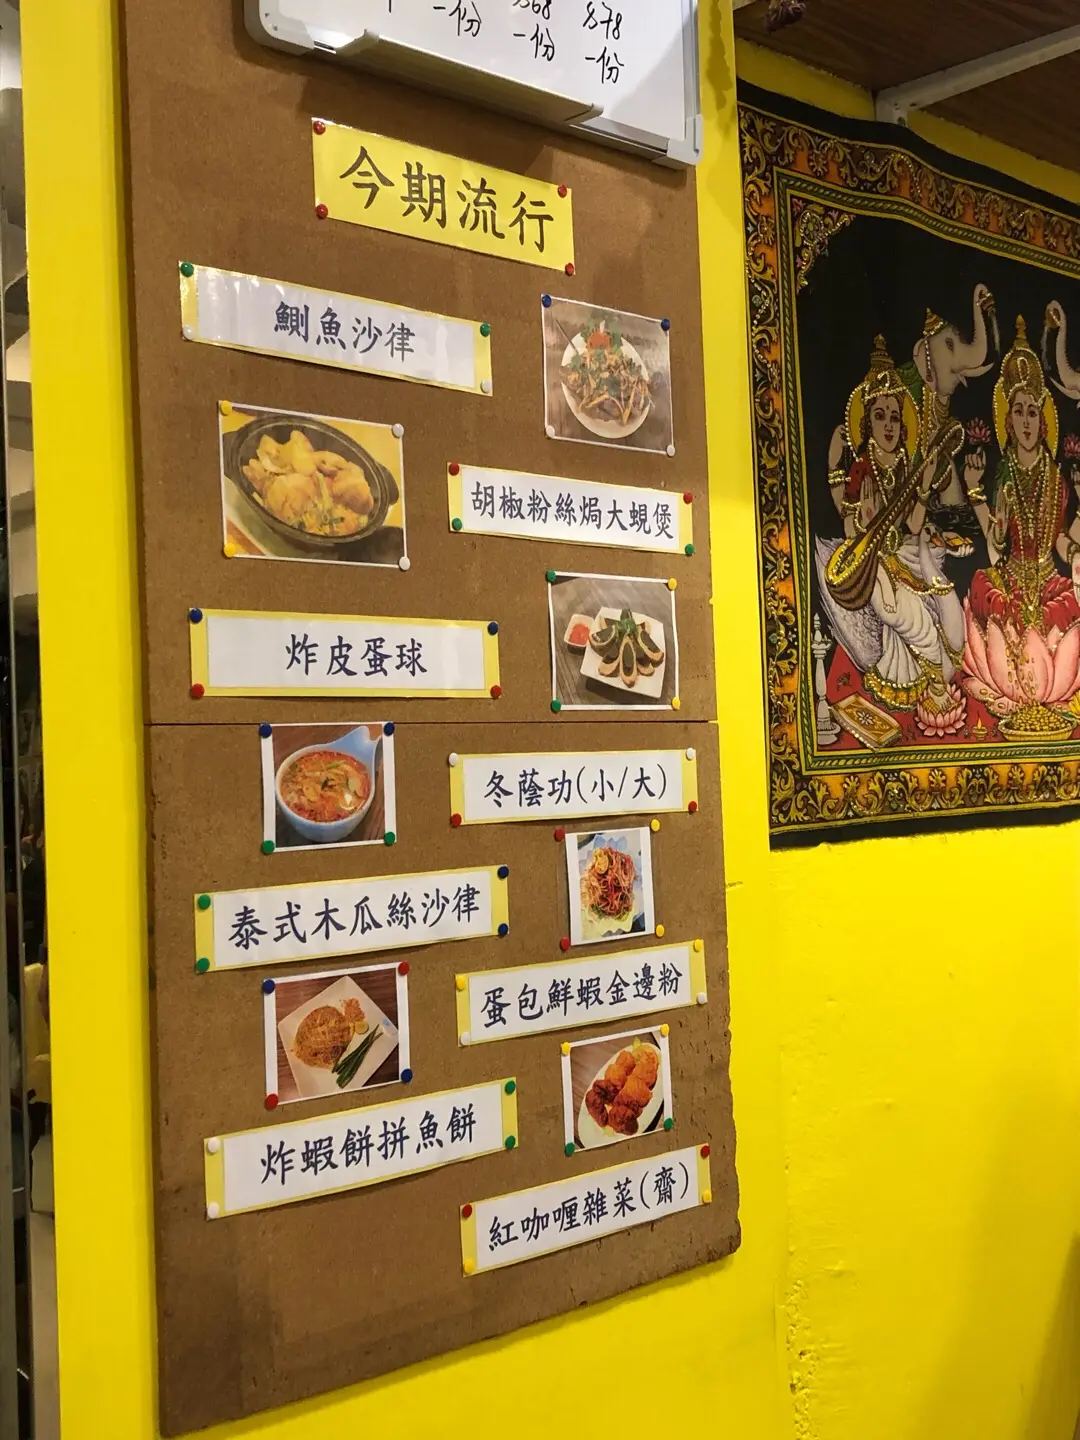 一份
$68
一份
$78
一份
今期流行
鰂魚沙律
胡椒粉絲焗大蜆煲
炸皮蛋球
冬蔭功(小/大)
泰式木瓜絲沙律
蛋包鮮蝦金邊粉
炸蝦餅拼魚餅
紅咖喱雜菜(齋)